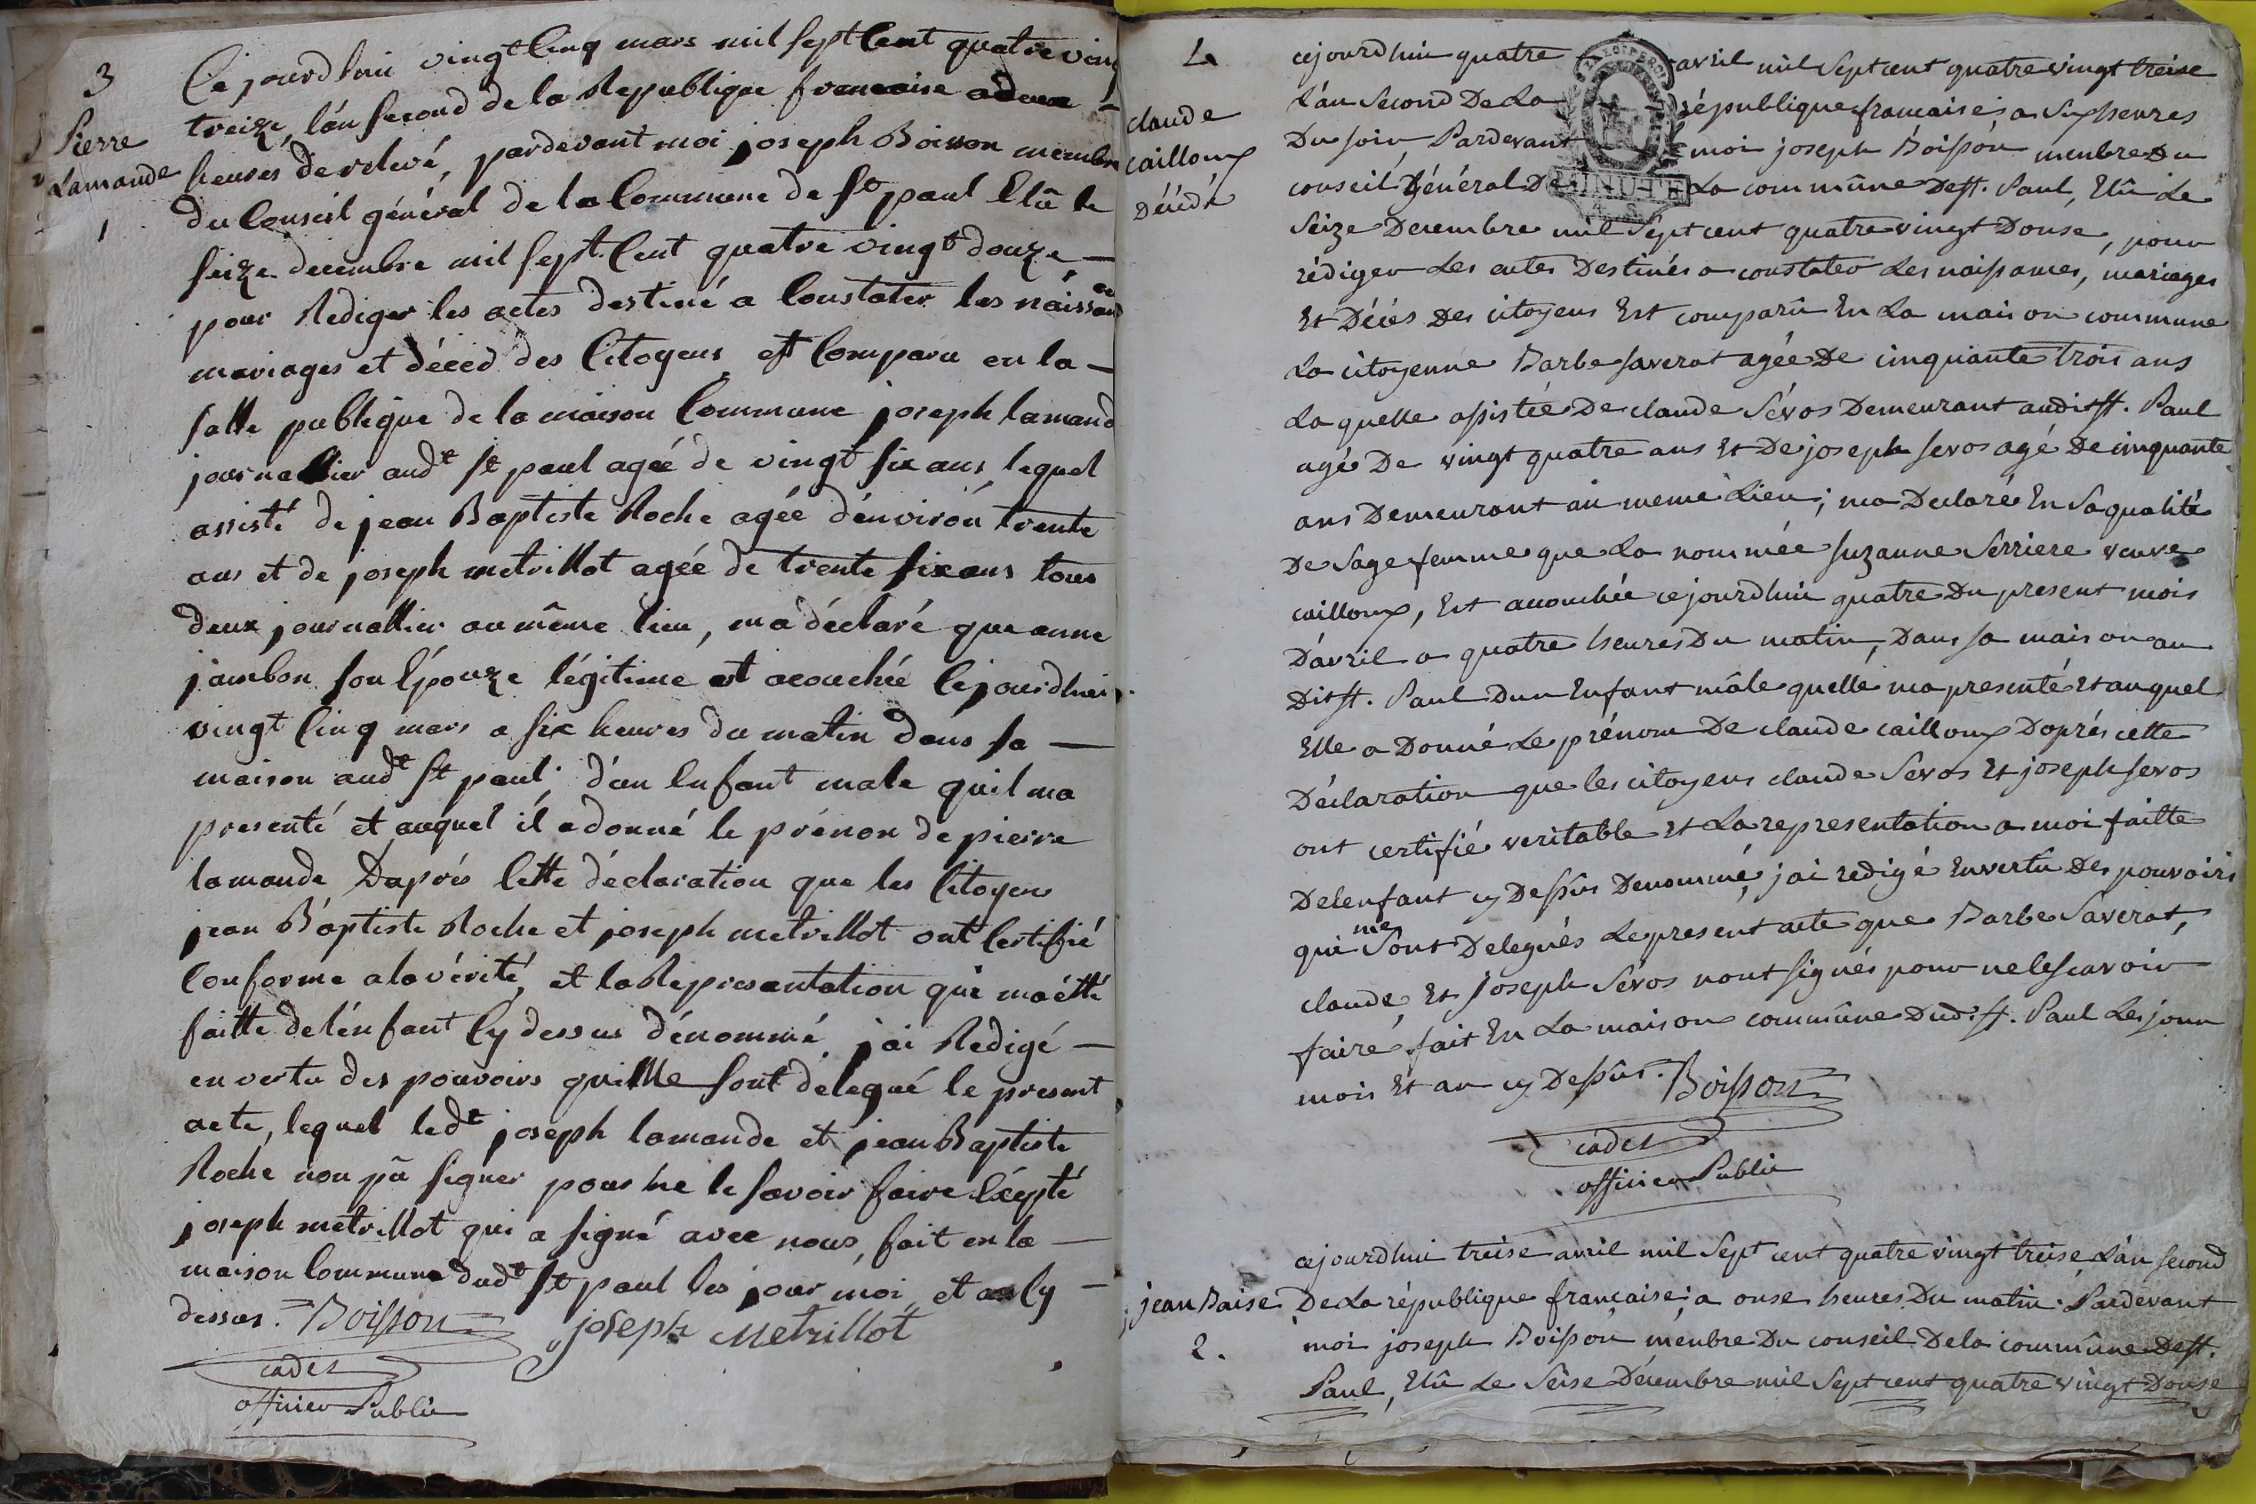 3
Pierre
Lamande
1
Ce jourdhui vingt Cinq mars mil sept Cent quatre ving
treize, l'án second de la Republique francaise a deux
heures de relevé, pardevant moi joseph Boisson membre
du Conseil général de la Commune de St paul Elû le
seize decembre mil sept Cent quatre vingt douze
pour Rediger les actes destiné a Constater les náissances
mariages et déced des Citoyens est Comparu en la
salle publique de la maison Commune joseph lamand
journallier audt St paul agée de vingt six ans lequel
assisté de jean Baptiste Roche agée d'énvirón trente
ans et de joseph metrillot agée de trente six ans tous
deux journallier au même lieu, ma déclaré que anne
jambon son Épouze légitime et acouchée Cejourdhui
vingt Cinq mars a six heures du matin dans sa
maison audt St paul d'un Enfant male quil ma
presenté et auquel il a donné le prénon de pierre
lamande Daprés Cette déclaration que les Citoyens
jean Baptiste Roche et joseph metrillot ont Certifié
Conforme a la vérité, et la Representation qui ma étté
faitte de l'énfant Cy dessus dénommé j'ai Redigé
en vertu des pouvoirs qui Me sont délegué le present
acte, lequel ledt joseph lamande et jean Baptiste
Roche non pû signer pour ne le savoir faire Exépté
joseph metrillot qui a signé avec nous, fait en la
maison Commune dudt St paul les jour moi et an Cy
dessus. Boisson joseph Metrillot
cadet
officier Public
4
claude
cailloux
Décédé
cejourdhui quatre avril mil Sept cent quatre vingt treise
L'án Second De La république francaise; a Six heures
Du soir, Pardevant moi joseph Boisson membre Du
conseil Général De La commûne De St. Paul, Elû Le
Seize Decembre mil Sept cent quatre vingt Douse, pour
rédiger Les actes Destinés a constater Les naissances, mariages
Et Décés Des citoyens Est comparû En La maison commune
La citoyenne Barbe Saverat agée De cinquante trois ans
La quelle assistée De claude Sévos Demeurant audit St. Paul
agé De vingt quatre ans Et De joseph Sevos agé De cinquante
ans Demeurant au meme Lieu; ma Declaré En Sa qualité
De Sage femme que La nommée Suzanne Serriere veuve
cailloux, Est acouchée cejourdhui quatre Du present mois
D'avril a quatre heures Du matin, Dans Sa maison au
Dit St. Paul Dun Enfant mâle quelle ma presenté Et auquel
Elle a Donné Le prénom De claude cailloux Daprés cette
Déclaration que les citoyens claude Sevos Et joseph Sevos
ont certifié veritable Et La representation a moi faitte
De lenfant cy Dessûs Denommé, jai redigé En vertû Des pouvoirs
qui me Sont Delegués Le present acte que Barbe Saverat,
claude, Et Joseph Sévos nont Signés pour ne le Scavoir
faire, fait En La maison commûne Dud. St. Paul Les jour
mois Et an cy Dessûs. Boisson
cadet
officier Public
jean Baise
2.
cejourdhui treise avril mil Sept cent quatre vingt treise, L'án Second
De La république francaise; a onse heures Du matin. Pardevant
moi joseph Boisson membre Du conseil De la commûne De St.
Paul, Elû Le Seise Décembre mil Sept cent quatre vingt Douse